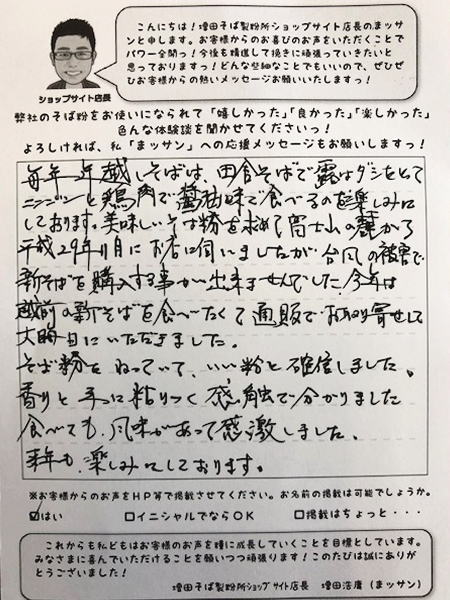 こんにちは！増田そば製粉所ショップサイト店長のまッサ
ンと申します。お客様からのお喜びのお声をいただくことで
パワー全開っ！今後も精進して挽きに頑張っていきたいと
思っております！どんな些細なことでもいいので、ぜひぜ
ひお客様からの熱いメッセージお願いいたしますっ！
ショップサイト店長
弊社のそば粉をお使いになられて「嬉しかった」「良かった」「楽しかった」
色んな体験談を聞かせてくださいっ！
よろしければ、私「まッサン」への応援メッセージもお願いしますっ！
毎年年越しそばは、田舎そばで露はダシをとって
ニンジンと鶏肉で醤油味で食べるのを楽しみに
しております。美味しいそば粉を求めて富士山の麓から
平成29年11月にお店に伺いましたが台風の被害で
新そばを購入する事が出来ませんでした。今年は
越前の新そばを食べたくて通販でお取り寄せして
大晦日にいただきました。
そば粉をねっていて、いい粉と確信しました。
香りと手に粘りつく感触で分かりました
食べても、風味があって感激しました。
来年も楽しみにしております。
※お客様からのお声をHP等で掲載させてください。お名前の掲載は可能でしょうか。
☑はい □イニシャルでならOK □掲載はちょっと・・・
これからも私どもはお客様のお声を糧に成長していくことを目標としています。
みなさまに喜んでいただけることを願いつつ頑張ります！このたびは誠にありが
とうございました！
増田そば製粉所ショップサイト店長 増田浩庸（まッサン）